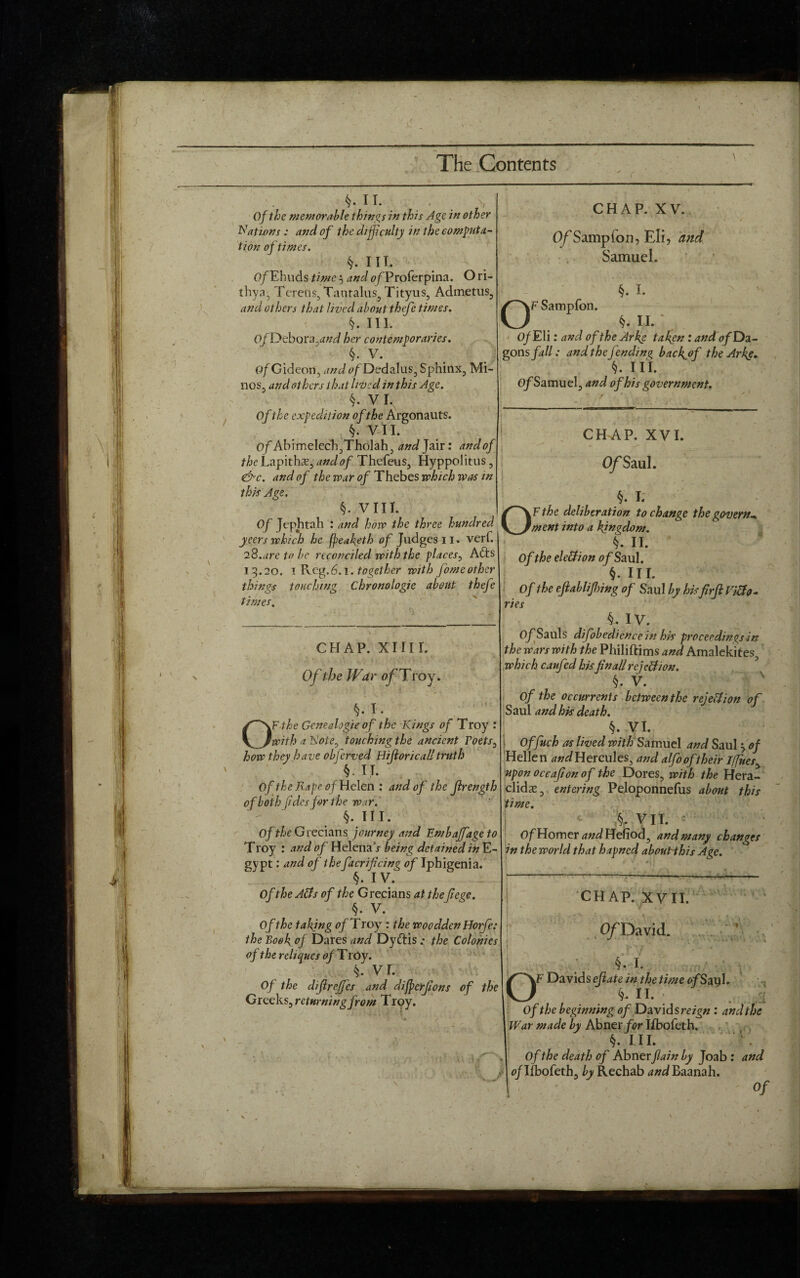 The Contents
§. II.
Of the memorable things in this Age in other
Nations : and of the difficulty in the computa-
tion of times.
§. III.
Of Ehuds time ; and of Proserpina. Ori-
thya, Tereus, Tantalus, Tityus, Admetus,
and others that lived about these times.
§. III.
Of Debora, and her contemporaries.
§. V.
Of Gideon, and of Dedalus, Sphinx, Mi-
nos, and others that lived in this Age.
§. VI.
Of the expedition of the Argonauts.
§. VII.
Of Abimelech, Tholah, and Jair : and of
the Lapithæ, and of Theseus, Hyppolitus,
&c. and of the war of Thebes which was in
this Age.
§. VIII.
Of Jephtah : and how the three hundred
yeers which he speaketh of Judges 11. vers.
28. are to be reconciled with the places, Acts
13.20. 1 Reg.6.1. together with some other
things touching Chronologie about these
times.
CHAP. XIIII.
Of the War of Troy.
§. I.
OF the Genealogie of the Kings of Troy :
with a Note, touching the ancient Poets,
how they have observed Historicall truth
§. II.
Of the Rape of Helen : and of the strength
of both sides for the war.
§. III.
Of the Grecians journey and Embassage to
Troy : and of Helena's being detained in E-
gypt : and of the sacrificing of Iphigenia.
§. IV.
Of the Acts of the Grecians at the siege.
§. V.
Of the taking of Troy : the woodden Horse:
the Book of Dares and Dyctis : the Colonies
of the reliques of Troy.
§. VI.
Of the distresses and dispersions of the
Greeks, returning from Troy.
CHAP. XV.
Of Sampson, Eli, and
Samuel.
§. I.
OF Sampson.
§. II.
Of Eli : and of the Arke taken : and of Da-
gons fall : and the sending back of the Arke.
§. III.
Of Samuel, and of his government.
CHAP. XVI.
Of Saul.
§. I.
OF the deliberation to change the govern-
ment into a kingdom.
§. II.
Of the election of Saul.
§. III.
Of the establishing of Saul by his first Victo-
ries
§. IV.
Of Sauls disobedience in his proceedings in
the wars with the Philistims and Amalekites,
which caused his finall rejection.
§. V.
Of the occurrents between the rejection of
Saul and his death.
§. VI.
Of such as lived with Samuel and Saul ; of
Hellen and Hercules, and also of their Issues,
upon occasion of the Dores, with the Hera-
clidæ, entering Peloponnesus about this
time.
§. VII.
Of Homer and Hesiod, and many changes
in the world that hapned about this Age.
CHAP. XVII.
Of David.
§. I.
OF Davids estate in the time of Saul.
§. II.
Of the beginning of Davids reign : and the
War made by Abner for Isboseth.
§. III.
Of the death of Abner slain by Joab : and
of Isboseth, by Rechab and Baanah.
Of